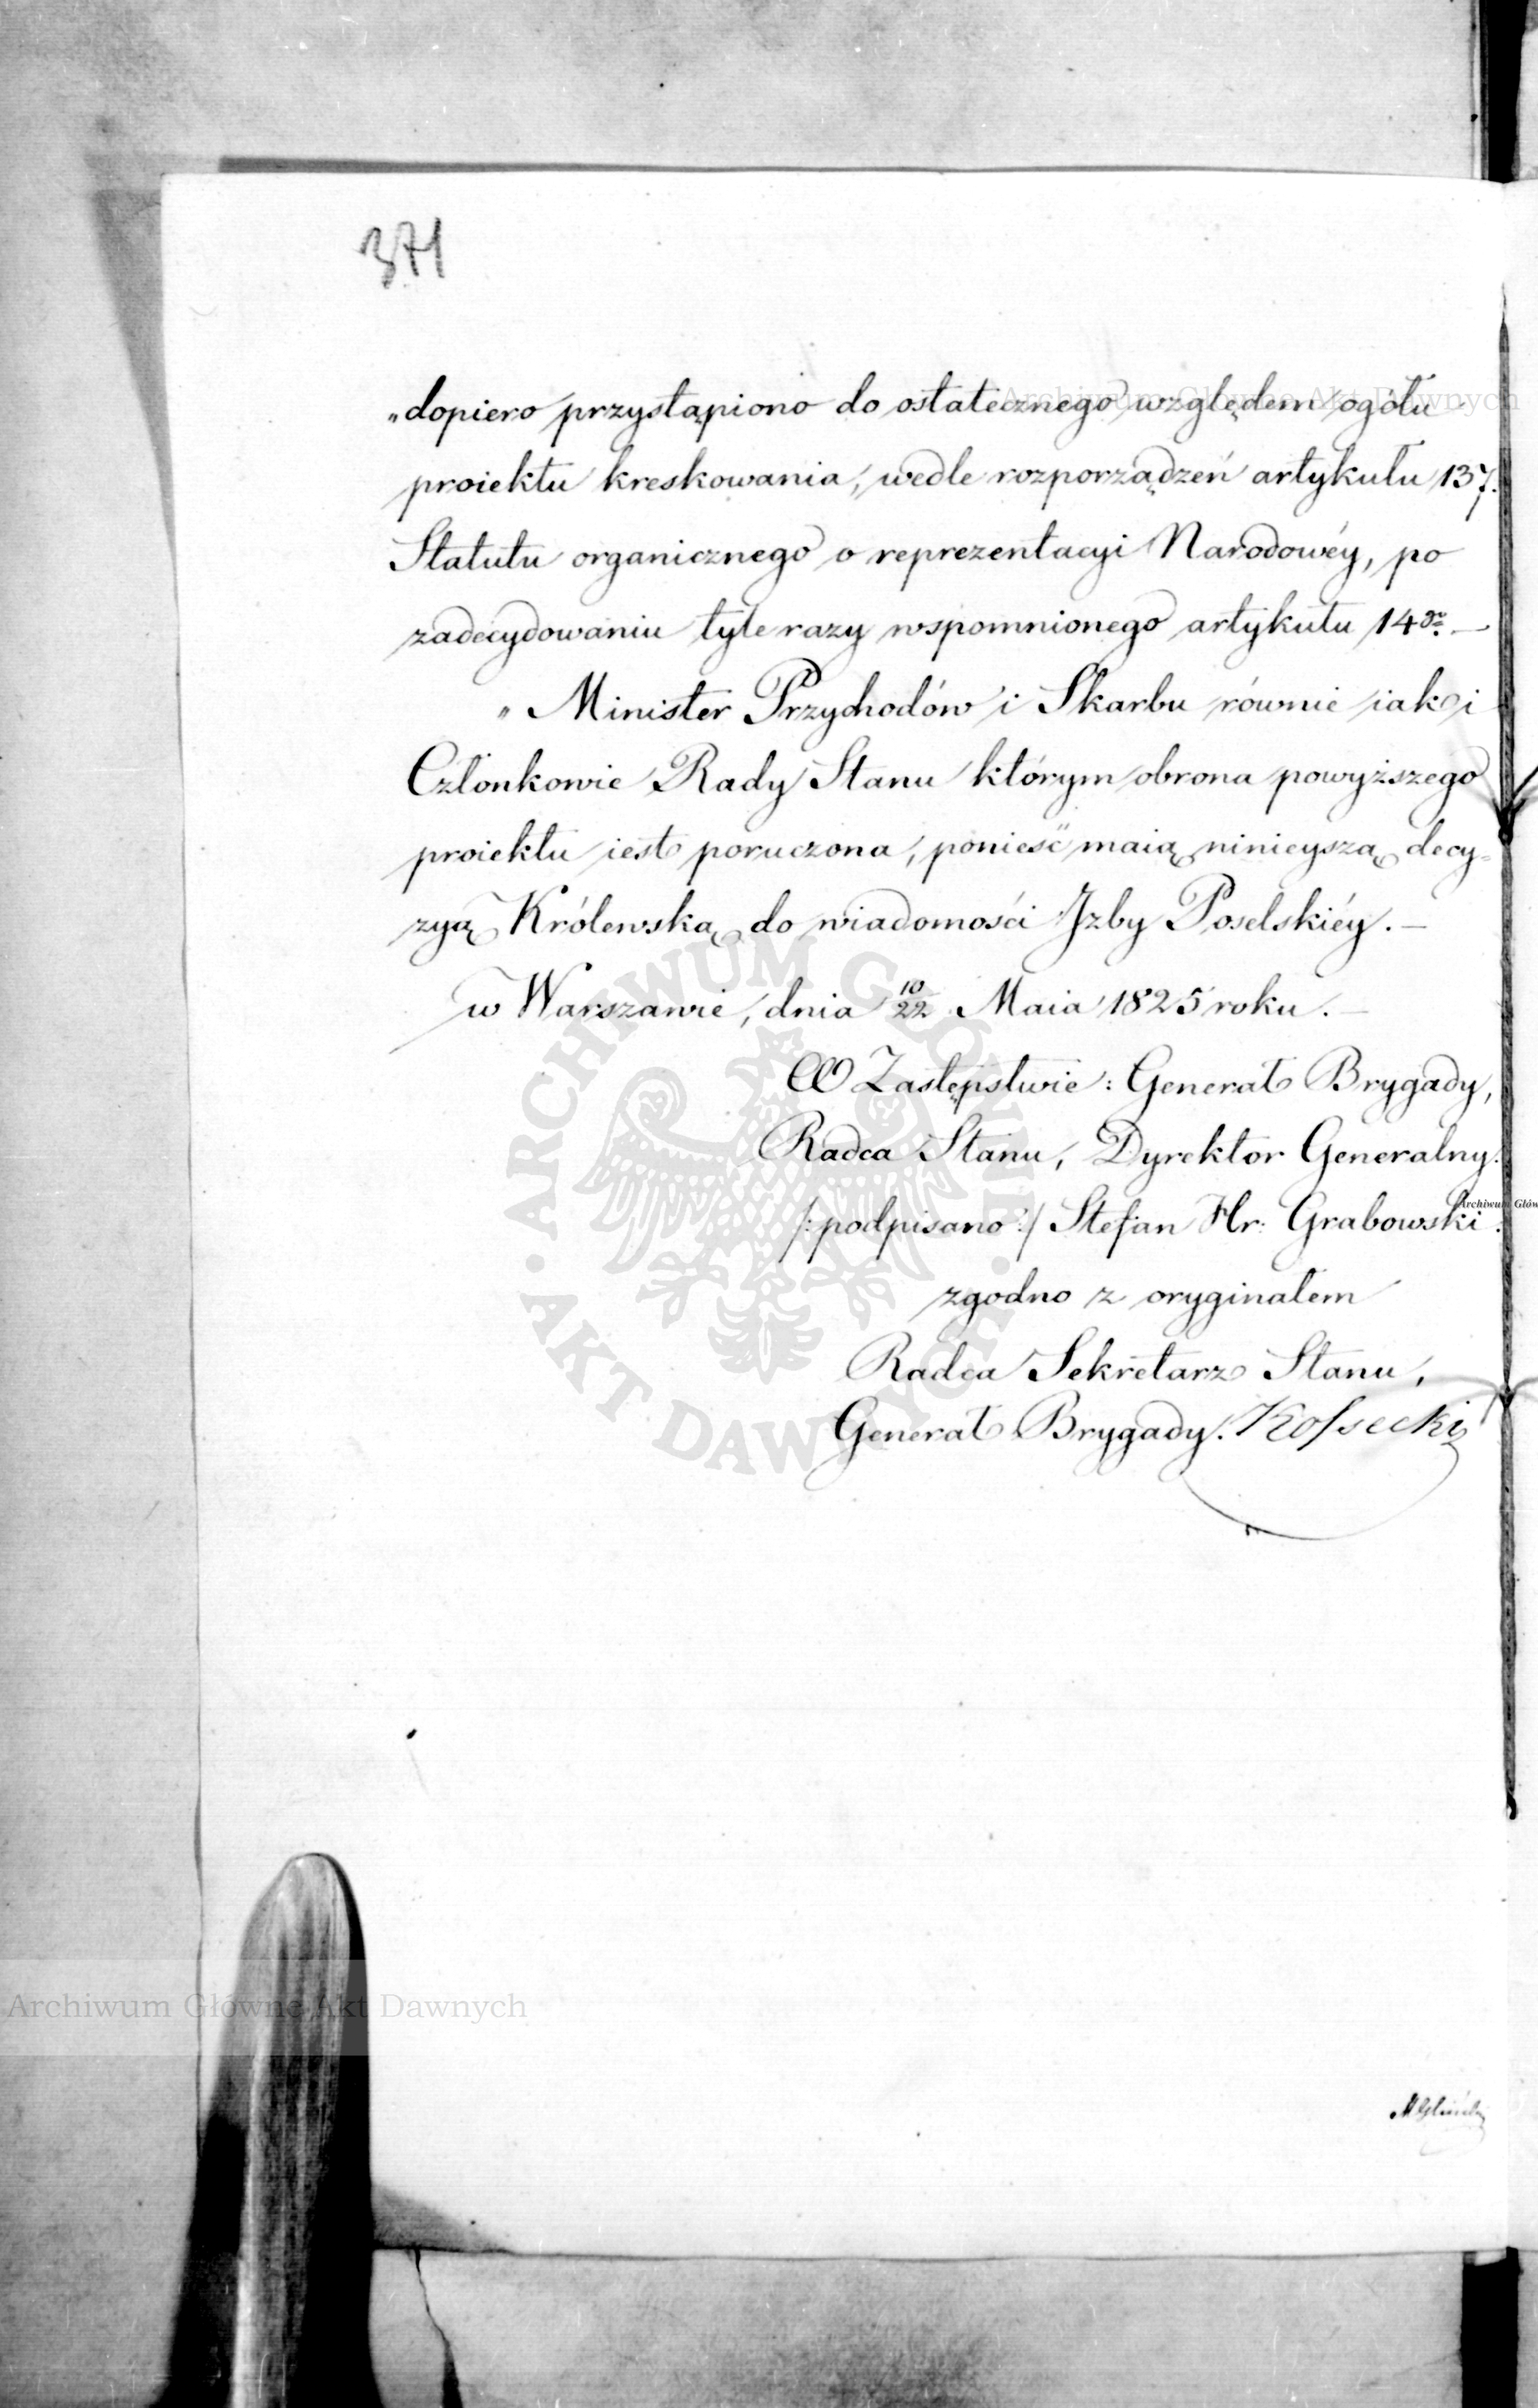 371
„dopiero przystąpiono do ostatecznego względem ogółu
proiektu kreskowania, wedle rozporządzeń artykułu 137.
Statutu organicznego o reprezentacyi Narodowéy, po
zadecydowaniu tyle razy wspomnionego artykułu 14go. —
„Minister Przychodów i Skarbu równie iak i
Członkowie Rady Stanu którym obrona powyższego
proiektu iest poruczona, ponieść maią ninieyszą decy=
zyą Królewską do wiadomości Izby Poselskiéy. —
w Warszawie, dnia 10/22 Maia 1825 roku. —
W Zastępstwie: Generał Brygady,
Radca Stanu, Dyrektor Generalny.
/:podpisano:/ Stefan Hr: Grabowski.
zgodno z oryginałem
Radca Sekretarz Stanu,
Generał Brygady. Kossecki
Archiwum Główne Akt Dawnych
Archiwum Główne Akt Dawnych
ARCHIWUM GŁÓWNE AKT DAWNYCH